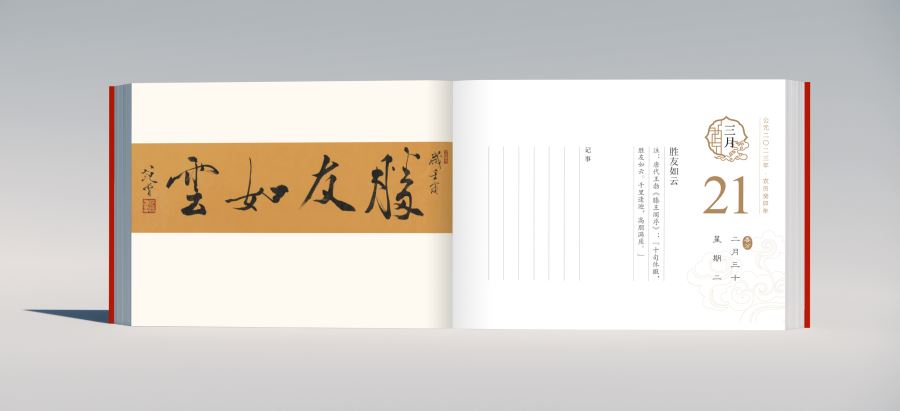 歲壬寅
勝友如雲
三月
21
公元二〇二三年·农历癸卯年
春分
二月三十
星期二
胜友如云
注：唐代王勃《滕王阁序》：「十旬休暇，
胜友如云，千里逢迎，高朋满座。」
记事